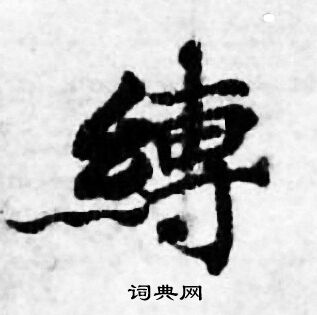 縛
词典网